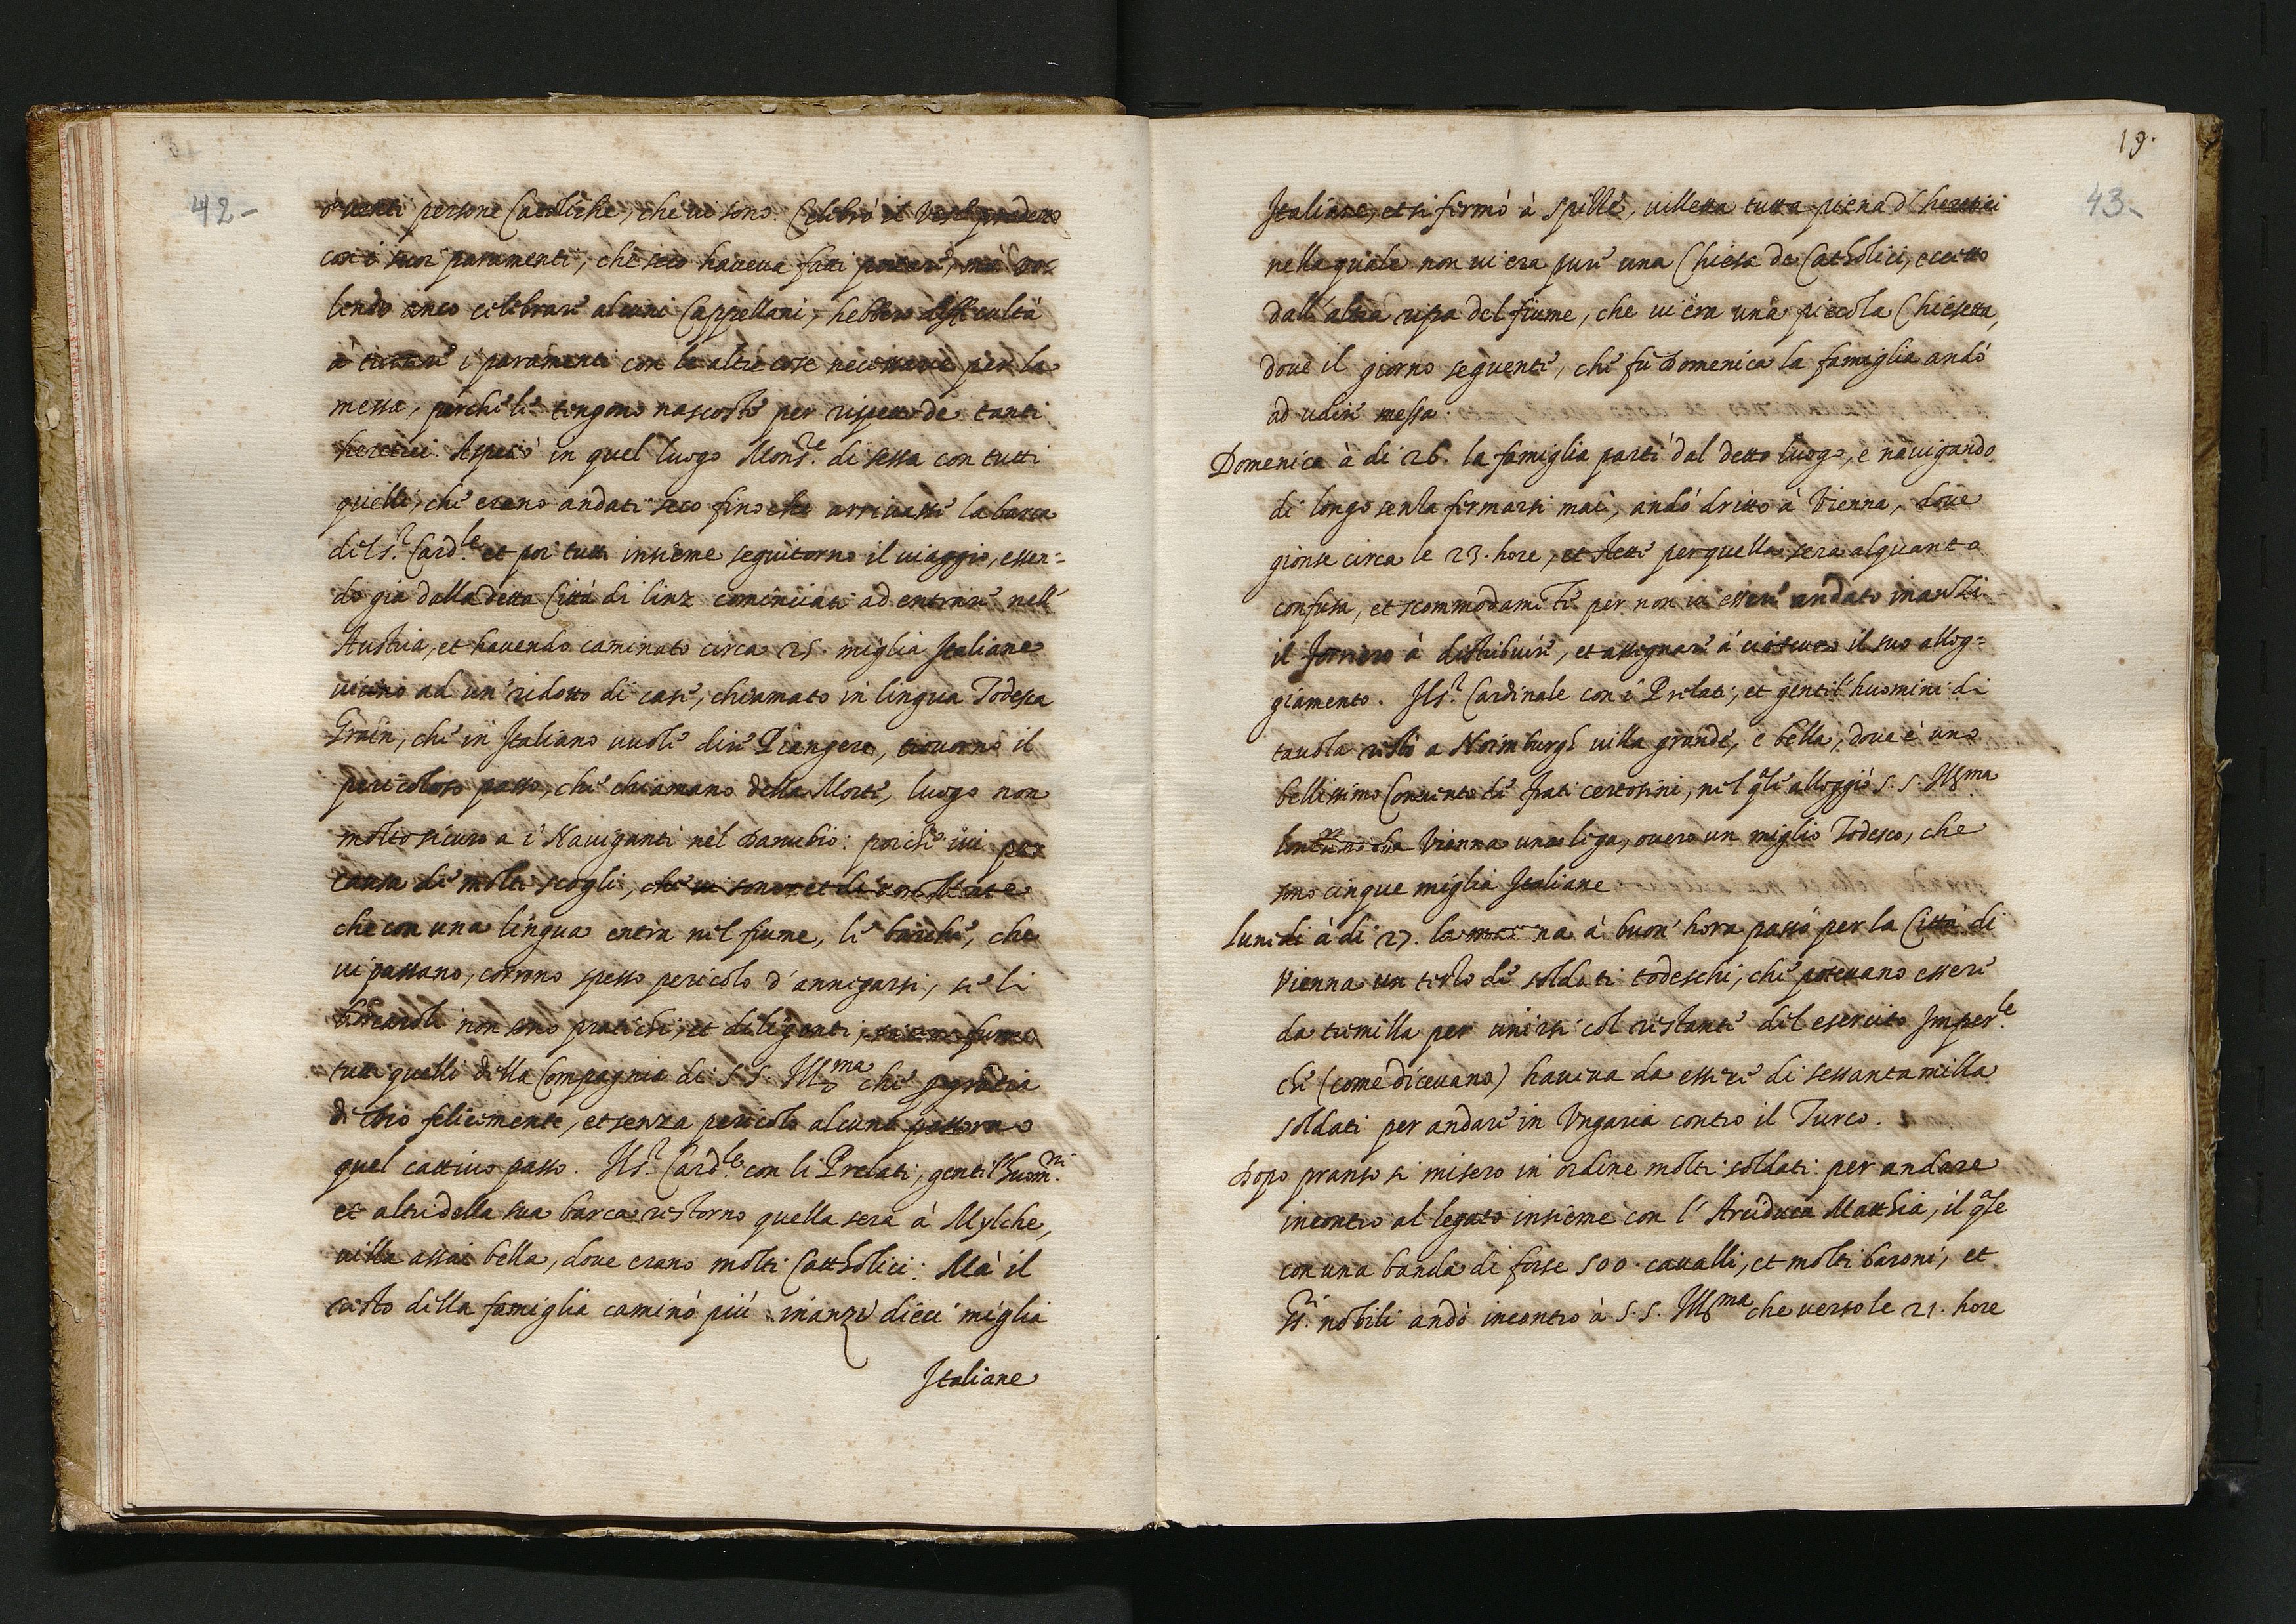 42-
ò venti persone Catoliche, che vi sono. Celebrò il Vesc. predetto
con i suoi paramenti, che seco haveva fatti portare, mà vo=
lendo anco celebrare alcuni Cappellani, hebbero difficultà
à trovare i paramenti con le altre cose necessarie per la
messa, perche le tengono nascoste per rispetto de tanti
heretici. Aspettò in quel luogo Mons.re di sessa con tutti
quelli, che erano andati seco fino che arrivasse la barca
del s.r Card.le et poi tutti insieme seguitorno il viaggio, essen=
do già dalla detta Città di linz cominciati ad entrare nell'
Austria, et havendo caminato circa 25. miglia Italiane
vicino ad un' ridotto di case, chiamato in lingua Todesca
Grain, che in Italiano vuole dire Piangere, trovorno il
pericoloso passo, che chiamano della Morte, luogo non
molto sicuro a i Naviganti nel Danubio: poiche ivi per
causa di molti scogli, che vi sono et di
che con una lingua entra nel fiume, le barche, che
vi passano, corrono spesso pericolo d'annegarsi, se li
barcaroli non sono pratichi, et diligenti, furno
tutti quelli della Compagnia di S. S. Ill.ma che p gratia
di Dio felicemente, et senza pericolo alcuno passorno
quel cattivo passo. Il s.r Card.le con li Prelati, gentil'huom.ni
et altri della sua barca restorno quella sera à Mylche,
villa assai bella, dove erano molti Catholici: Mà il
resto della famiglia caminò più inanzi dieci miglia
Italiane
19.
43-
Italiane, et si fermò à Spille, villetta tutta piena d'heretici
nella quale non vi era pure una Chiesa de Catholici, eccetto
dall'altra ripa del fiume, che vi era una piccola Chiesetta,
dove il giorno seguente, che fù Domenica la famiglia andò
ad udire messa.
Domenica à di 26. la famiglia partì dal detto luogo, e navigando
di longo senza fermarsi mai, andò dritto à Vienna, dove
gionse circa le 23. hore, et stette per quella sera alquanto
confusa, et scommodamente per non vi essere andato inanzi
il forriero à distribuire, et assegnare à ciascuno il suo allog=
giamento. Il s.r Cardinale con i Prelati, et gentil'huomini di
tavola restò a Noimburgh villa grande, e bella, dove è uno
bellissimo Convento di frati certosini, nel qle alloggiò S. S. Ill.ma
lontano da Vienna una lega, overo un miglio Todesco, che
sono cinque miglia Italiane
Lunedi à di 27. la matina à buon' hora passò per la Città di
Vienna un terzo di soldati todeschi, che potevano essere
da tremilla per unirsi col restante del esercito Imper.le
che (come dicevano) haveva da essere di sessantamilla
soldati per andare in Ungaria contro il Turco.
Dopo pranso si misero in ordine molti soldati per andare
incontro al legato insieme con l'Arciduca Matthia, il qle
con una banda di forse 500. cavalli, et molti baroni, et
ss.ri nobili andò incontro à S. S. Ill.ma che verso le 21. hore